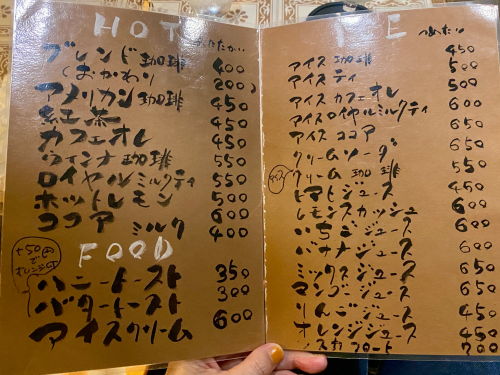 HOT あたたかい
ブレンド珈琲 400
(おかわり 200)
アメリカン珈琲 450
紅茶 450
カフェオレ 450
ウィンナ珈琲 550
ロイヤルミルクティ 550
ホットレモン 500
ココア 600
ミルク 400
FOOD
+50円で
ハニートースト 350
バタートースト 300
アイスクリーム 600
ICE つめたい
アイス珈琲 450
アイスティ 500
アイスカフェオレ 500
アイスロイヤルミルクティ 600
アイスココア 650
クリームソーダ 650
クリーム珈琲 550
トマトジュース 450
レモンスカッシュ 600
いちごジュース 650
バナナジュース 600
ミックスジュース 650
マンゴジュース 600
りんごジュース 450
オレンジジュース 450
フロート 700